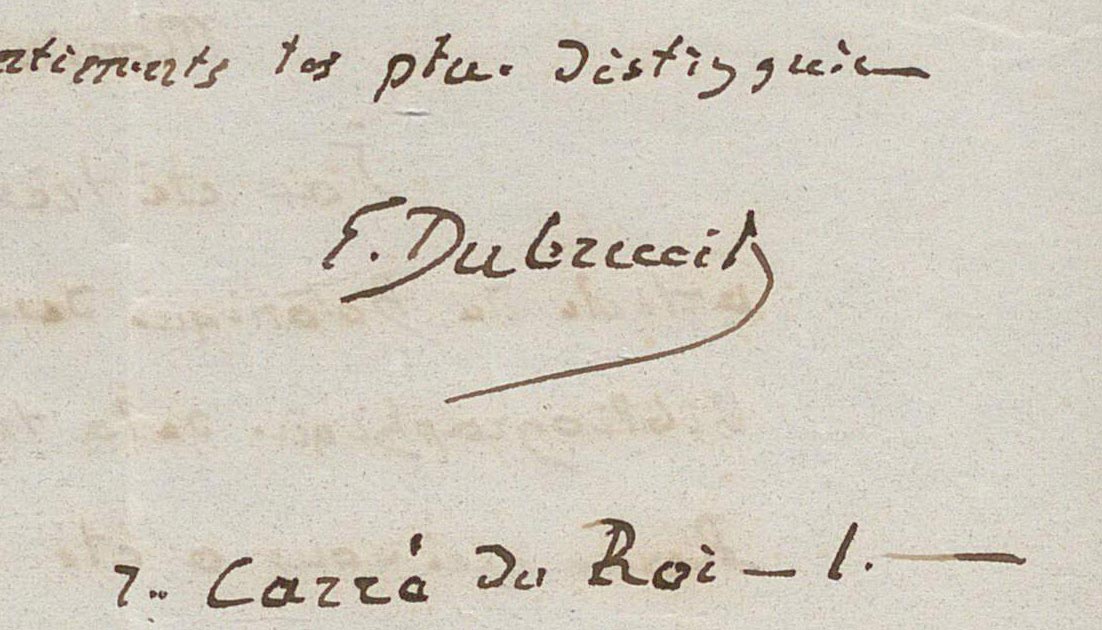 sentiments les plus distingués
E. Dubrueil
r. Carré du Roi – 1. –